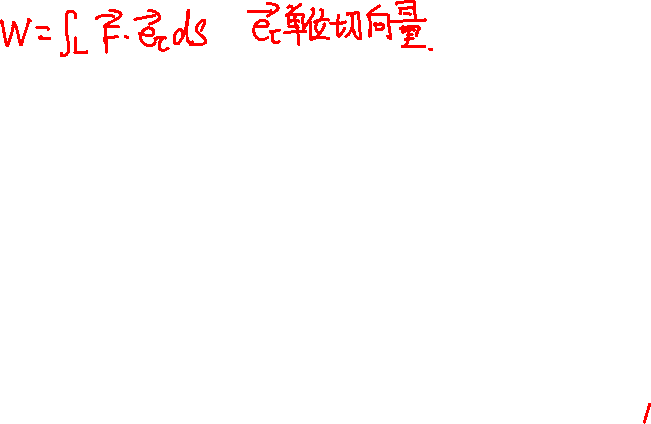 W = ∫_L F⃗·e⃗_τ ds   e⃗_τ 单位切向量.